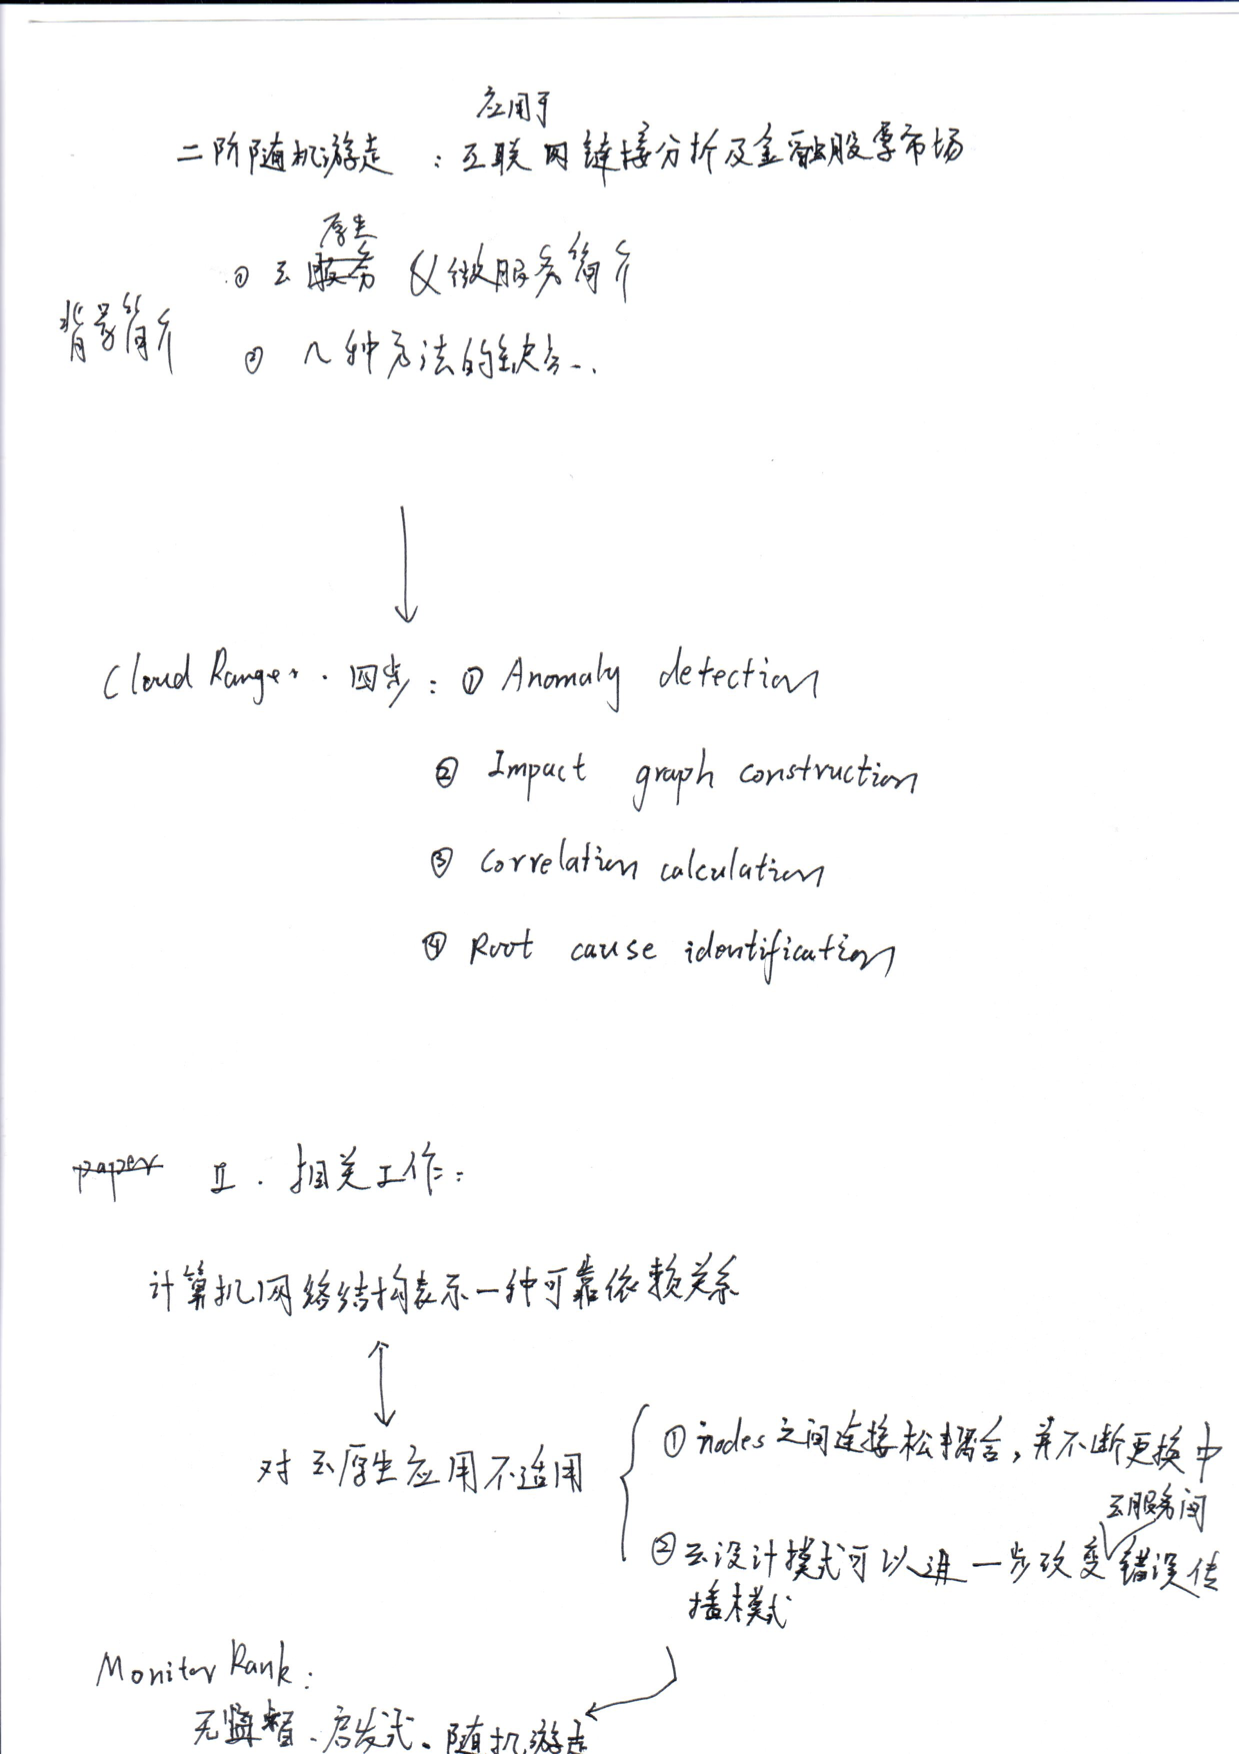 应用于
二阶随机游走 : 互联网链接分析及金融股票市场
原生
① 云服务 & 微服务简介
背景简介
② 几种方法的缺点...
Cloud Ranger. 四步: ① Anomaly detection
② Impact graph construction
③ Correlation calculation
④ Root cause identification
paper II. 相关工作:
计算机网络结构表示一种可靠依赖关系
对云原生应用不适用
① nodes之间连接松耦合,并不断更换中
云服务间
② 云设计模式可以进一步改变错误传
播模式
Monitor Rank:
无监督、启发式、随机游走